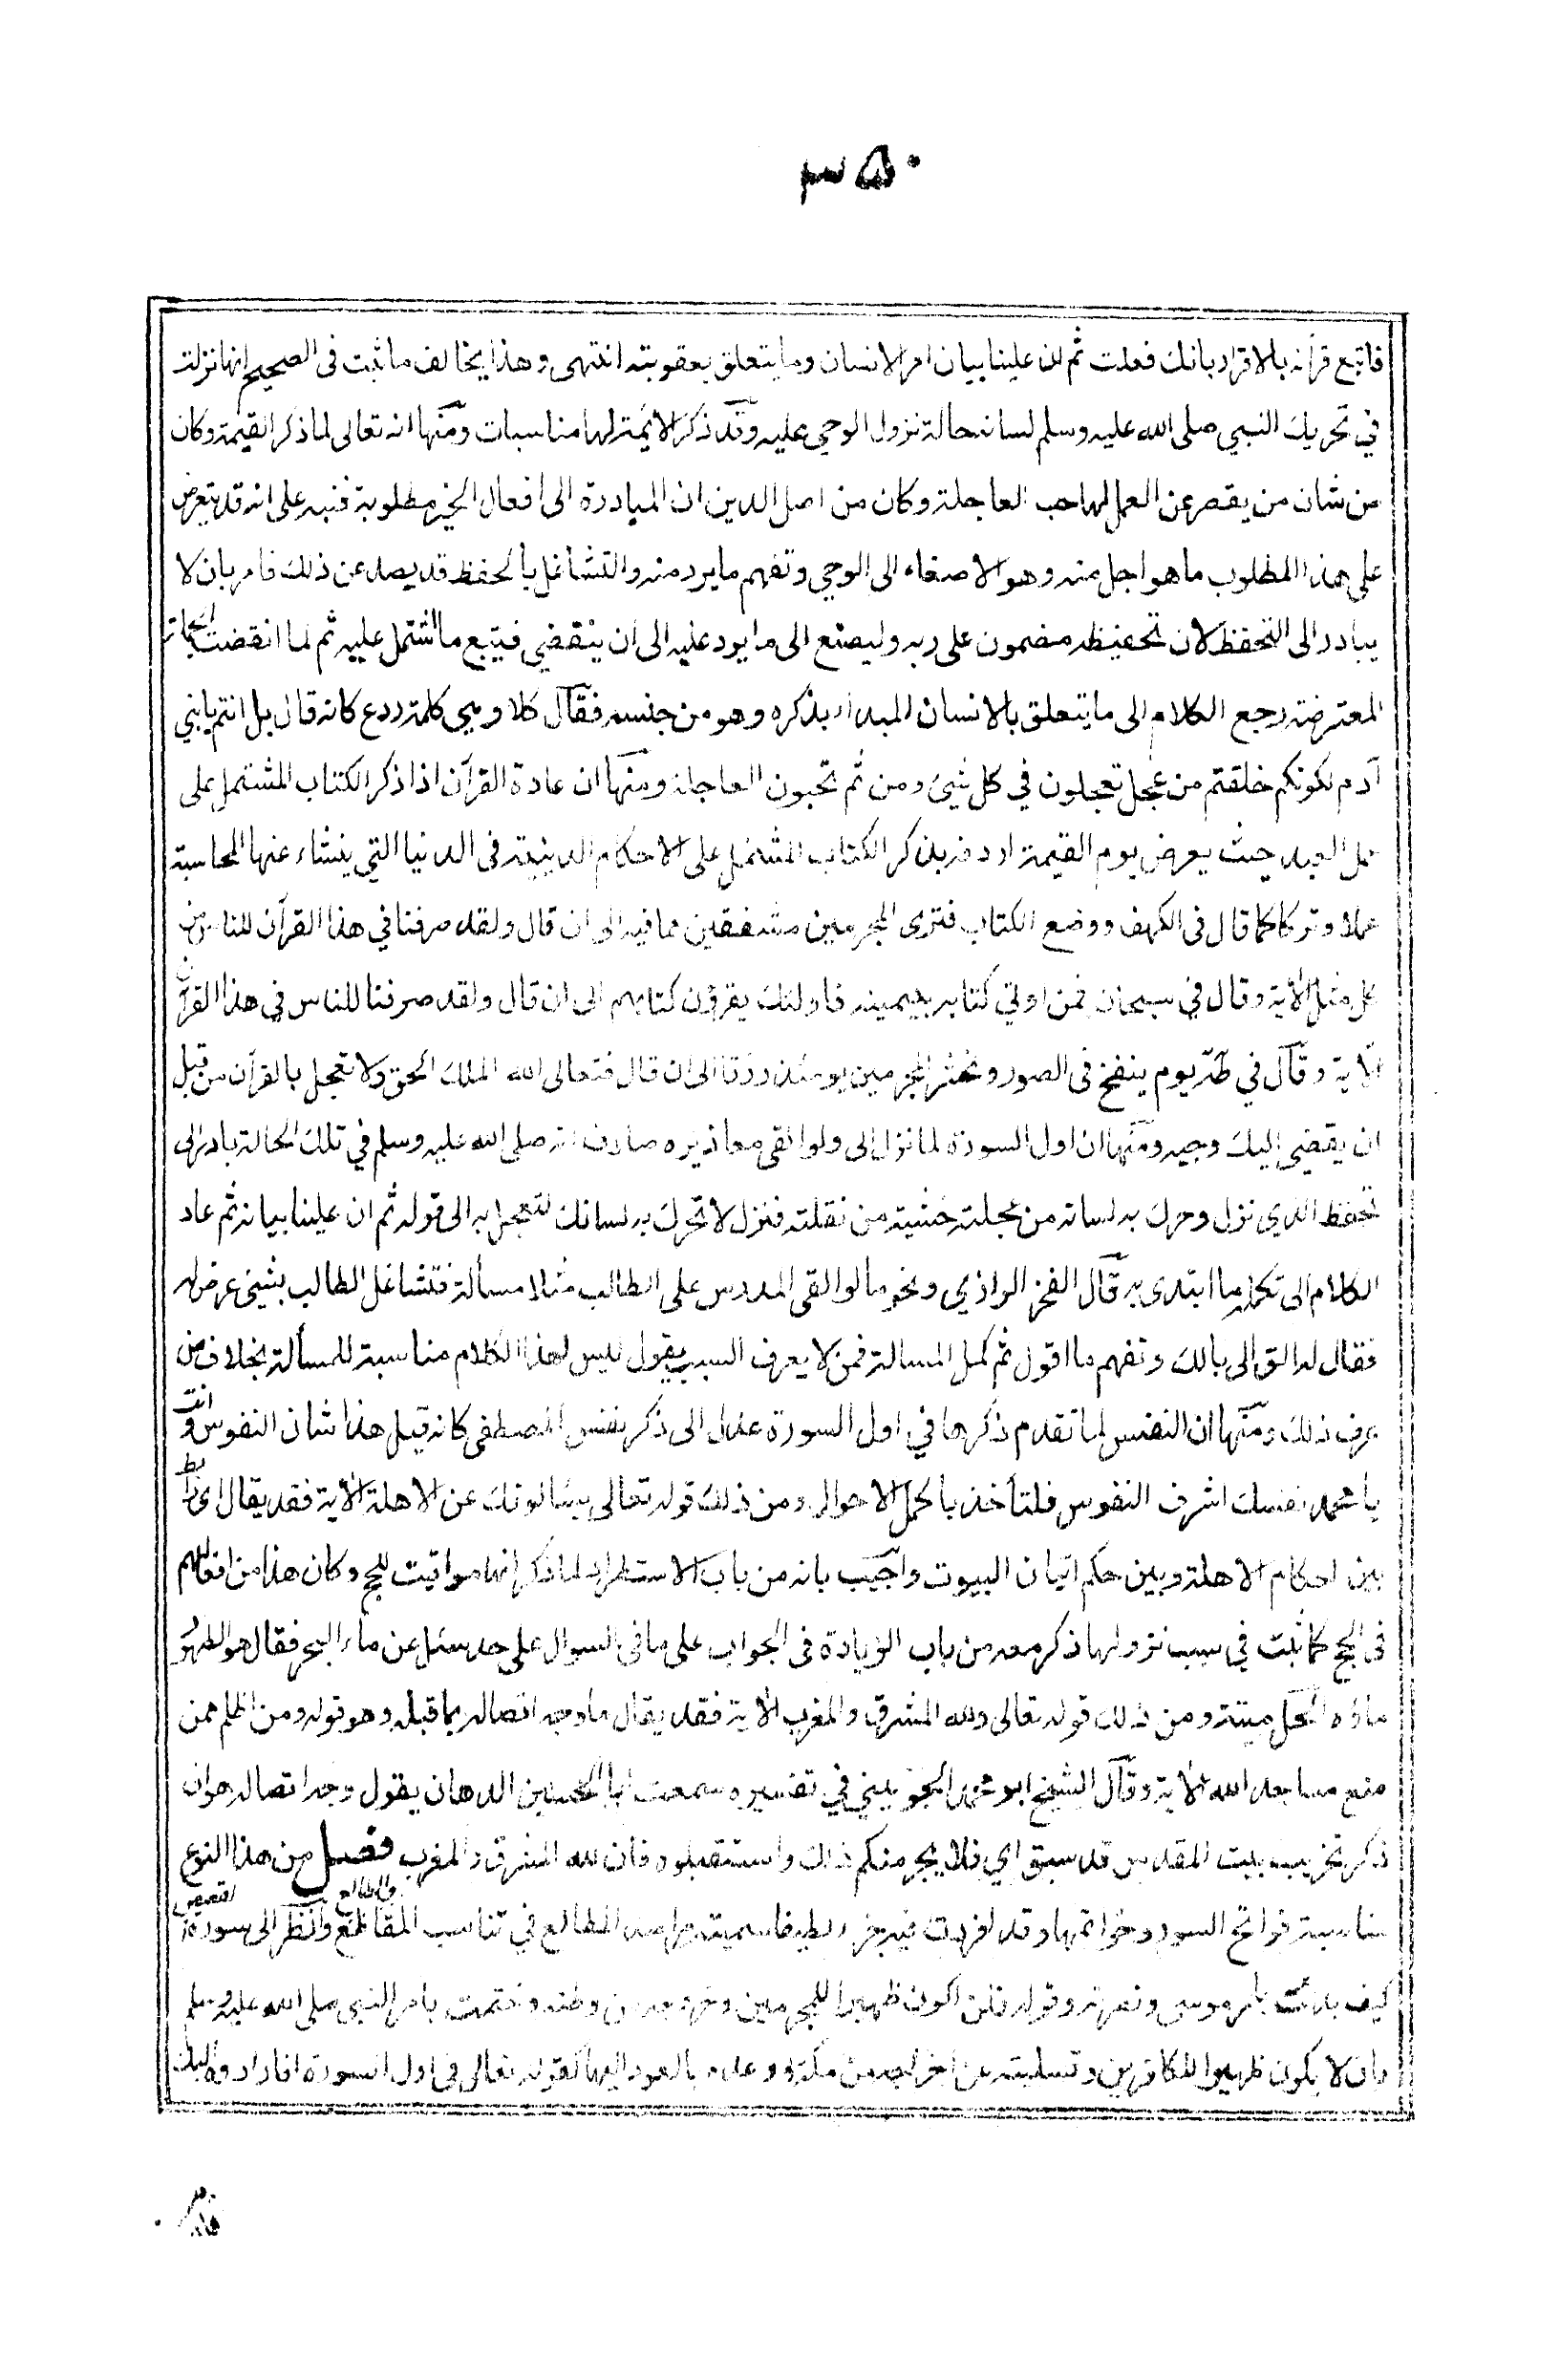 ٣٥٠
فاتبع قرآنه بالاقرار بانك فعلت ثم ان علينا بيان امر الانسان وما يتعلق بعقوبته انتهى وهذا يخالف ما ثبت فى الصحيح انها نزلت
في تحريك النبي صلى الله عليه وسلم لسانه حالة نزول الوحي عليه وقد ذكر الائمة لها مناسبات ومنها انه تعالى لما ذكر القيمة وكان
من شان من يقصر عن العمل لها حب العاجلة وكان من اصل الدين ان المبادرة الى افعال الخير مطلوبة فنبه على انه قد يتعرض
على هذا المطلوب ما هو اجل منه وهو الاصغاء الى الوحي وتفهم ما يرد منه والتشاغل بالحفظ قد يصد عن ذلك فامر بان لا
يبادر الى التحفظ لان تحفيظه مضمون على ربه وليصغ الى ما يرد عليه الى ان ينقضي فيتبع ما اشتمل عليه ثم لما انقضت الجملة
المعترضة رجع الكلام الى ما يتعلق بالانسان المبدأ بذكره وهو من جنسه فقال كلا وهي كلمة ردع كانه قال بل انتم يابني
آدم لكونكم خلقتم من عجل تعجلون في كل شيئ ومن ثم تحبون العاجلة ومنها ان عادة القرآن اذا ذكر الكتاب المشتمل على
عمل العبد حيث يعرض يوم القيمة اردفه بذكر الكتاب المشتمل على الاحكام الدينية فى الدنيا التي ينشاء عنها المحاسبة
عملا وتركا كما قال فى الكهف ووضع الكتاب فترى المجرمين مشفقين مما فيه الى ان قال ولقد صرفنا في هذا القرآن للناس من
كل مثل الأية وقال في سبحان فمن اوتي كتابه بيمينه فاولئك يقرؤن كتابهم الى ان قال ولقد صرفنا للناس في هذا القرآن
الآية وقال في طه يوم ينفخ فى الصور ونحشر المجرمين يومئذ زرقا الى ان قال فتعالى الله الملك الحق ولا تعجل بالقرآن من قبل
ان يقضى اليك وحيه ومنها ان اول السورة لما نزل الى ولو القى معاذيره صادف انه صلى الله عليه وسلم في تلك الحالة بادر الى
تحفظ الذي نزل وحرك به لسانه من عجلته خشية من نفلته فنزل لا تحرك به لسانك لتعجل به الى قوله ثم ان علينا بيانه ثم عاد
الكلام الى تكملة ما ابتدى به قال الفخر الرازي ونحوه ما لو القى المدرس على الطالب مثلا مسألة فتشاغل الطالب بشيئ عرض له
فقال له الق الى بالك وتفهم ما اقول ثم كمل المسالة فمن لا يعرف السبب يقول ليس لهذا الكلام مناسبة للمسألة بخلاف من
عرف ذلك ومنها ان النفس لما تقدم ذكرها في اول السورة عدل الى ذكر نفس المصطفى كانه قيل هذا شان النفوس وانت
يا محمد نفسك اشرف النفوس فلتأخذ باكمل الاحوال ومن ذلك قوله تعالى يسئالونك عن الاهلة الأية فقد يقال اى رابط
بين احكام الاهلة وبين حكم اتيان البيوت واجيب بانه من باب الاستطراد لما ذكر انها مواقيت للحج وكان هذا من افعالهم
فى الحج كما ثبت في سبب نزولها ذكر معه من باب الزيادة فى الجواب على ما فى السوال على حد سئل عن ماء البحر فقال هو الطهور
ماؤه الحل ميتته ومن ذلك قوله تعالى ولله المشرق والمغرب الأية فقد يقال ما وجه اتصاله بما قبله وهو قوله ومن اظلم ممن
منع مساجد الله الأية وقال الشيخ ابو محمد الجويني في تفسيره سمعت ابا الحسين الدهان يقول وجه اتصاله هو ان
ذكر تخريب بيت المقدس قد سبق اي فلا يجرمنكم ذلك واستقبلوه فان لله المشرق والمغرب فصل من هذا النوع
مناسبة فواتح السور وخواتمها وقد افردت فيه جزء لطيفا سميته مراصد المطالع في تناسب المقاطع والمطالع وانظر الى سورة القصص
كيف بدئت بامر موسى ونصرته وقوله فلن اكون ظهيرا للمجرمين وخروجه من وطنه وختمت بامر النبي صلى الله عليه وسلم
بان لا يكون ظهيرا للكافرين وتسليته عن اخراجه من مكة ووعده بالعود اليها لقوله تعالى في اول السورة انا رادوه اليك